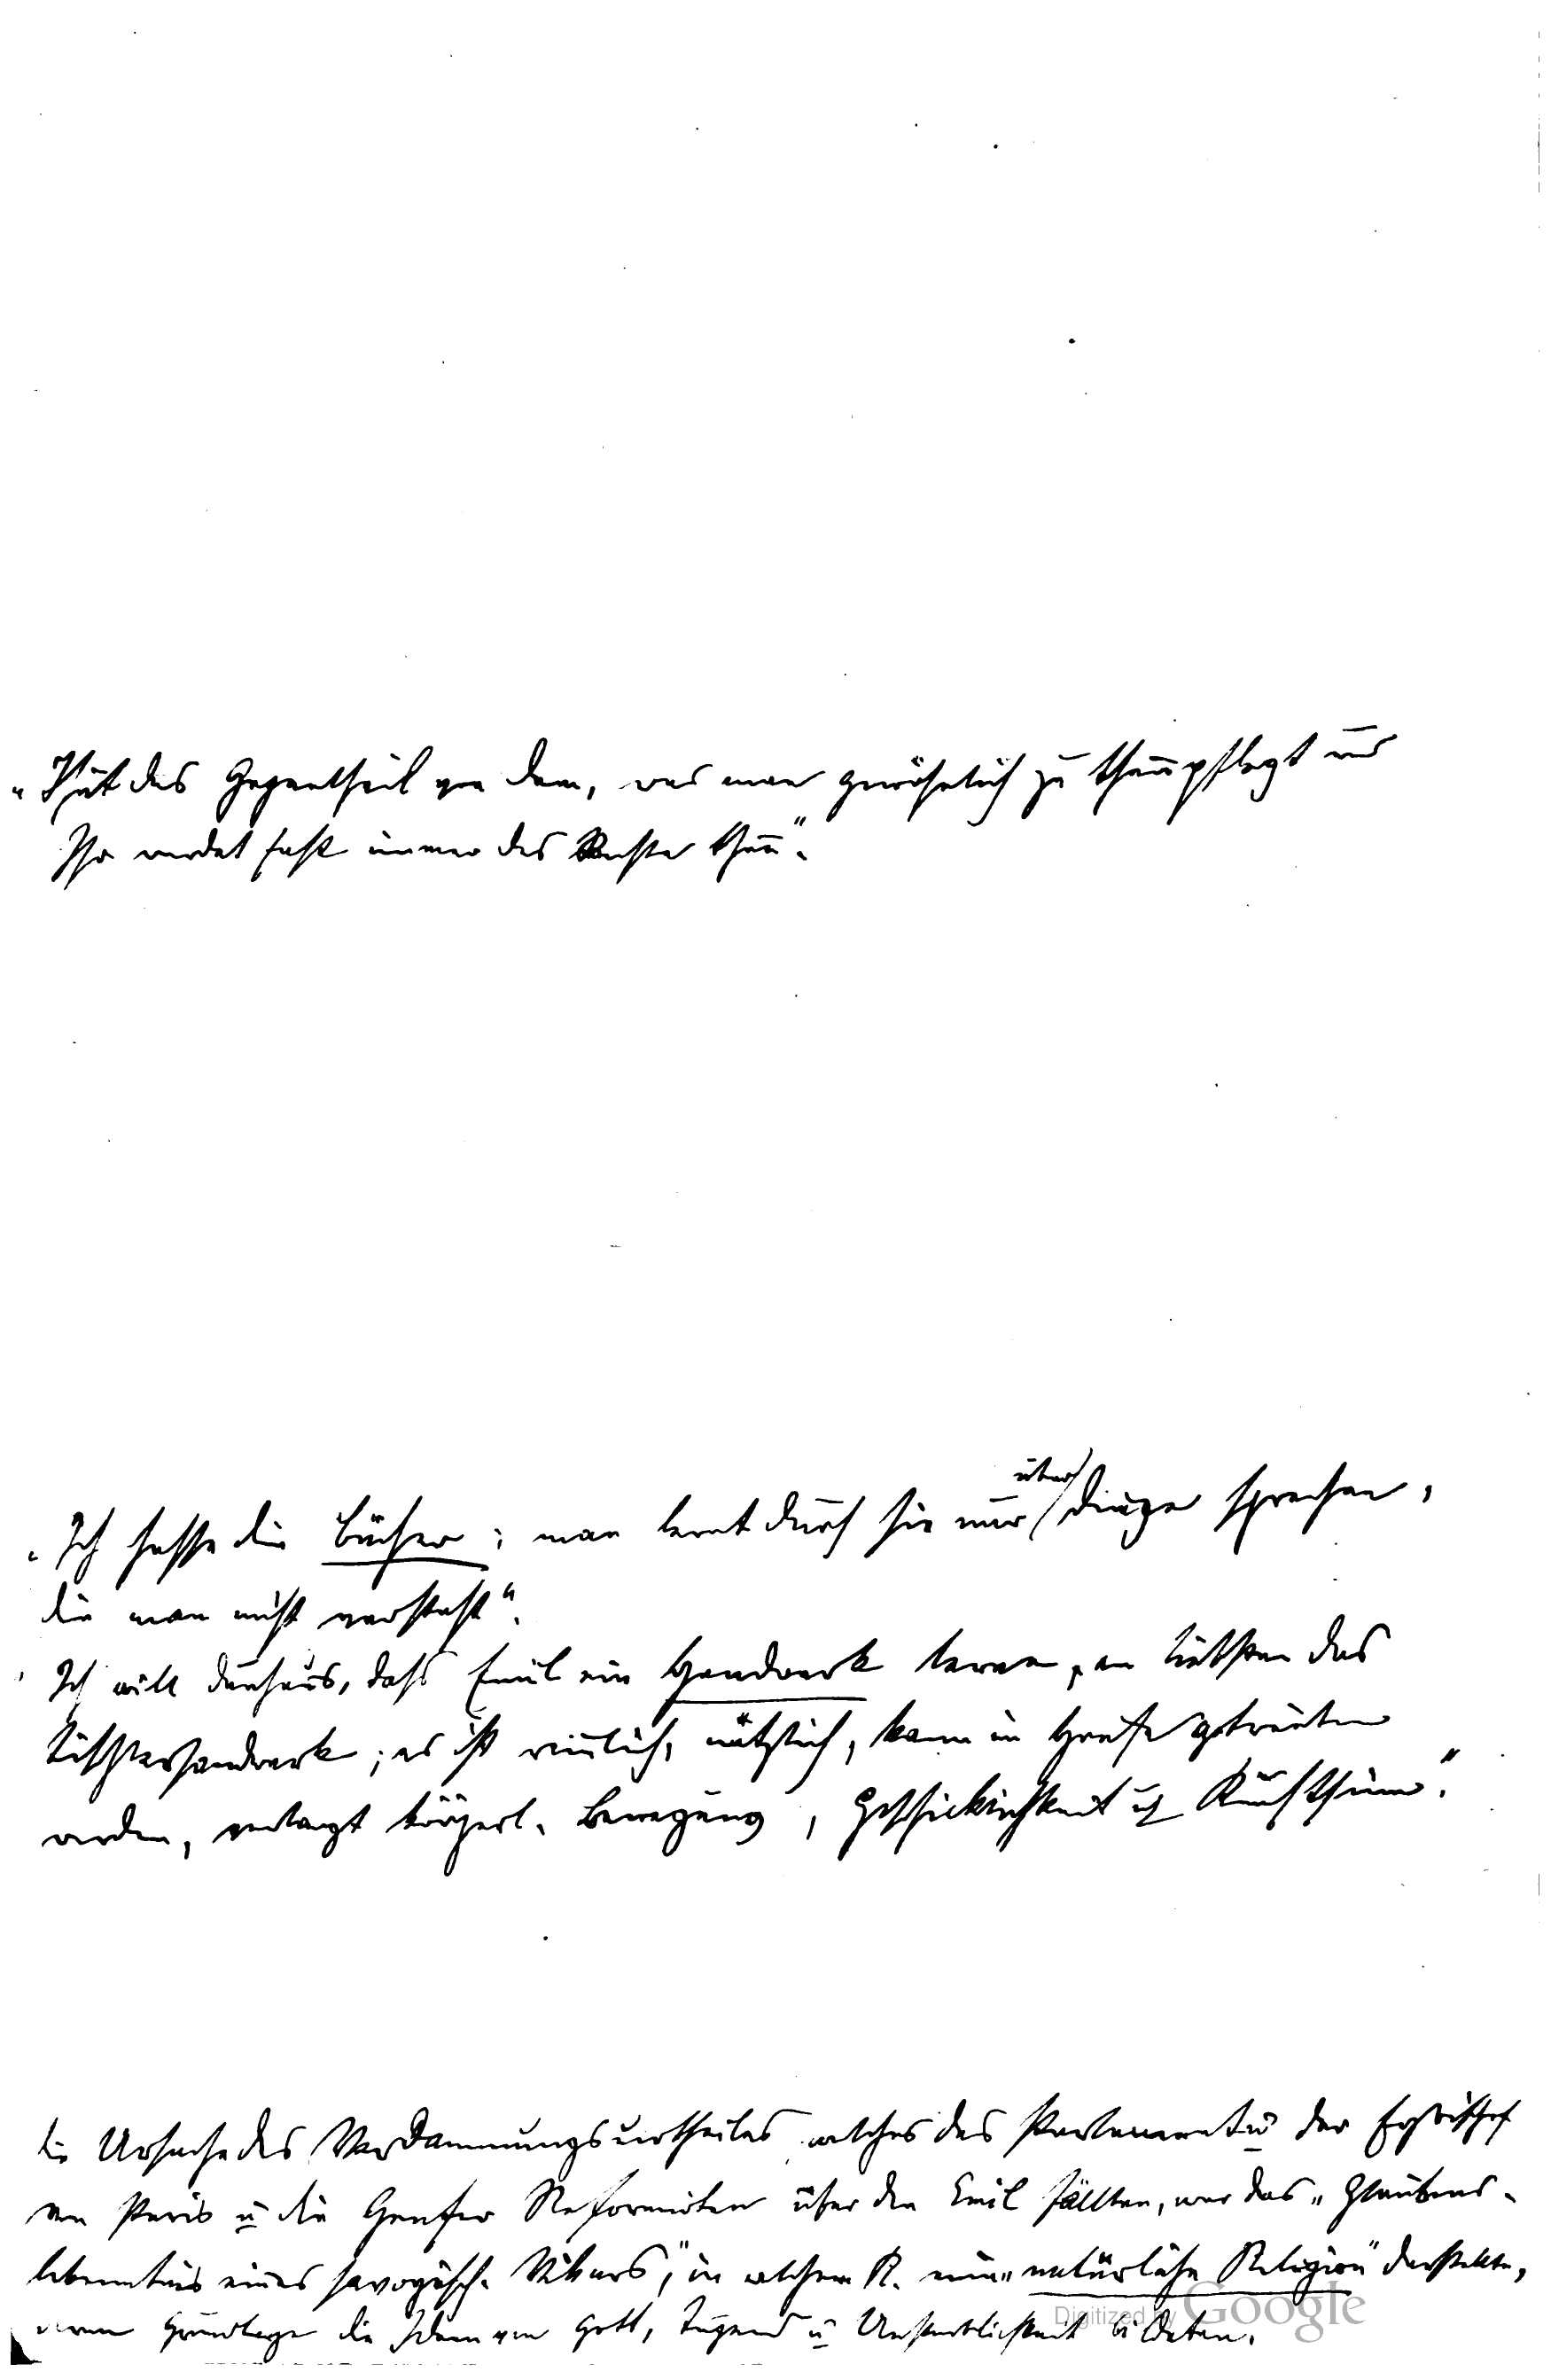 „Thut das Gegentheil von dem, was man gewöhnlich zu thun pflegt und
Ihr werdet fast immer das Rechte thun".
„Ich hasse die Bücher; man lernt durch sie nur über Dinge sprechen,
die man nicht versteht".
Ich will durchaus, dass Emil ein Handwerk lerne, am liebsten das
Tischlerhandwerk; es ist reinlich, nützlich, kann im Hause getrieben
werden, verlangt körperl. Bewegung, Geschicklichkeit u Kunstsinn."
Die Ursache des Verdammungsurtheiles welches das Parlament u der Erzbischof
von Paris u die Genfer Reformirten über den Emil fällten, war das „Glaubens-
bekenntnis eines savoyisch. Vikars", in welchem R. eine „natürliche Religion" darstellte,
deren Grundlage die Ideen von Gott, Tugend u Unsterblichkeit bildeten.
Digitized by Google